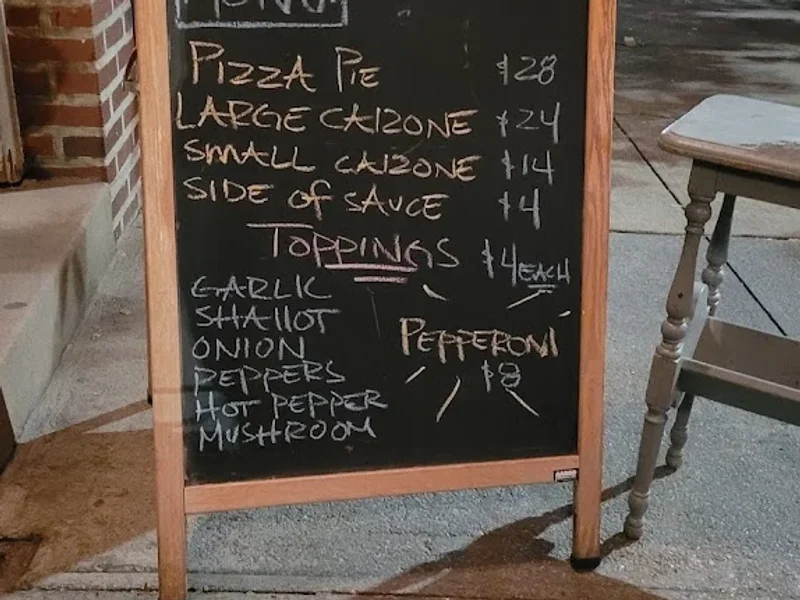 MENU
PIZZA PIE $28
LARGE CALZONE $24
SMALL CALZONE $14
SIDE OF SAUCE $4
TOPPINGS $4 EACH
GARLIC
SHALLOT
ONION
PEPPERS
HOT PEPPER
MUSHROOM
PEPPERONI
$8